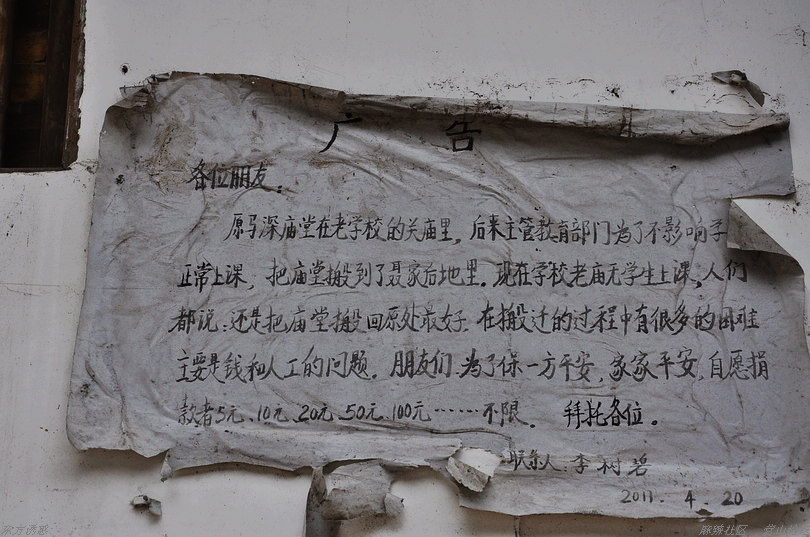 广 告
各位朋友：
原马深庙堂在老学校的关庙里，后来主管教育部门为了不影响学
正常上课，把庙堂搬到了聂家后地里。现在学校老庙无学生上课，人们
都说：还是把庙堂搬回原处最好。在搬迁的过程中有很多的困难
主要是钱和人工的问题。朋友们：为了保一方平安，家家平安，自愿捐
款者5元、10元、20元、50元、100元……不限。 拜托各位。
联系人：李树碧
2011. 4. 20
麻辣社区